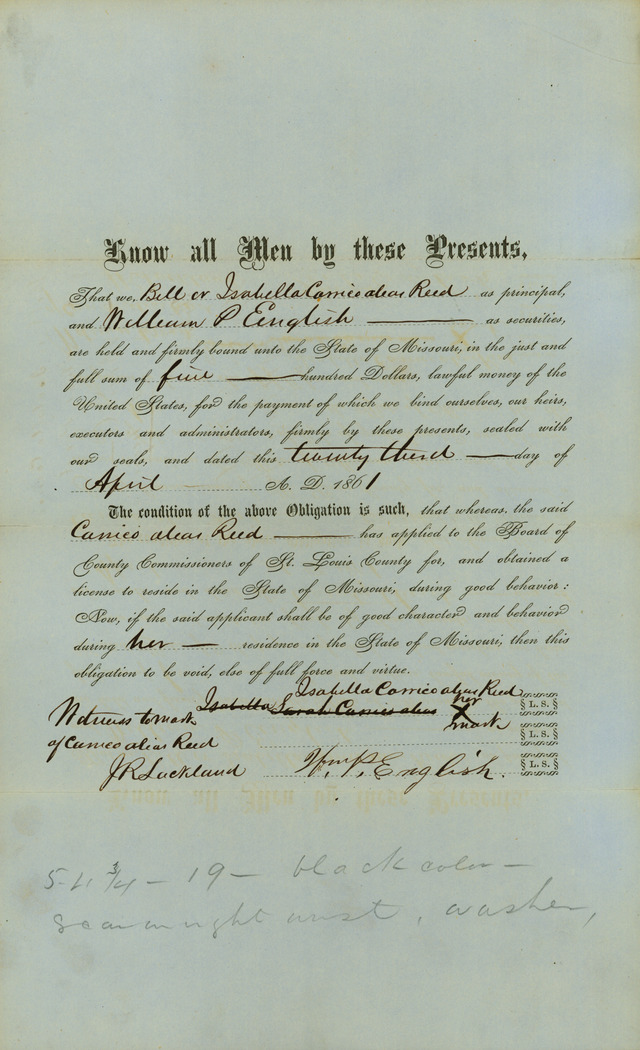 Know all Men by these Presents,
That we, Bell or Isabella Carrico alias Reed as principal,
and William P English as securities,
are held and firmly bound unto the State of Missouri, in the just and
full sum of five hundred Dollars, lawful money of the
United States, for the payment of which we bind ourselves, our heirs,
executors and administrators, firmly by these presents, sealed with
our seals, and dated this twenty third day of
April A. D. 1861
The condition of the above Obligation is such, that whereas, the said
Carrico alias Reed has applied to the Board of
County Commissioners of St. Louis County for, and obtained a
license to reside in the State of Missouri, during good behavior:
Now, if the said applicant shall be of good character and behavior
during her residence in the State of Missouri, then this
obligation to be void, else of full force and virtue.
Isabella Carrico alias Reed
Isabella Sarah Carrico alias her X mark L. S.
Witness to mark
of Carrico alias Reed L. S.
J R Lackland Wm. P. English. L. S.
5-4 3/4 - 19 - black color -
scar on right wrist, washer,